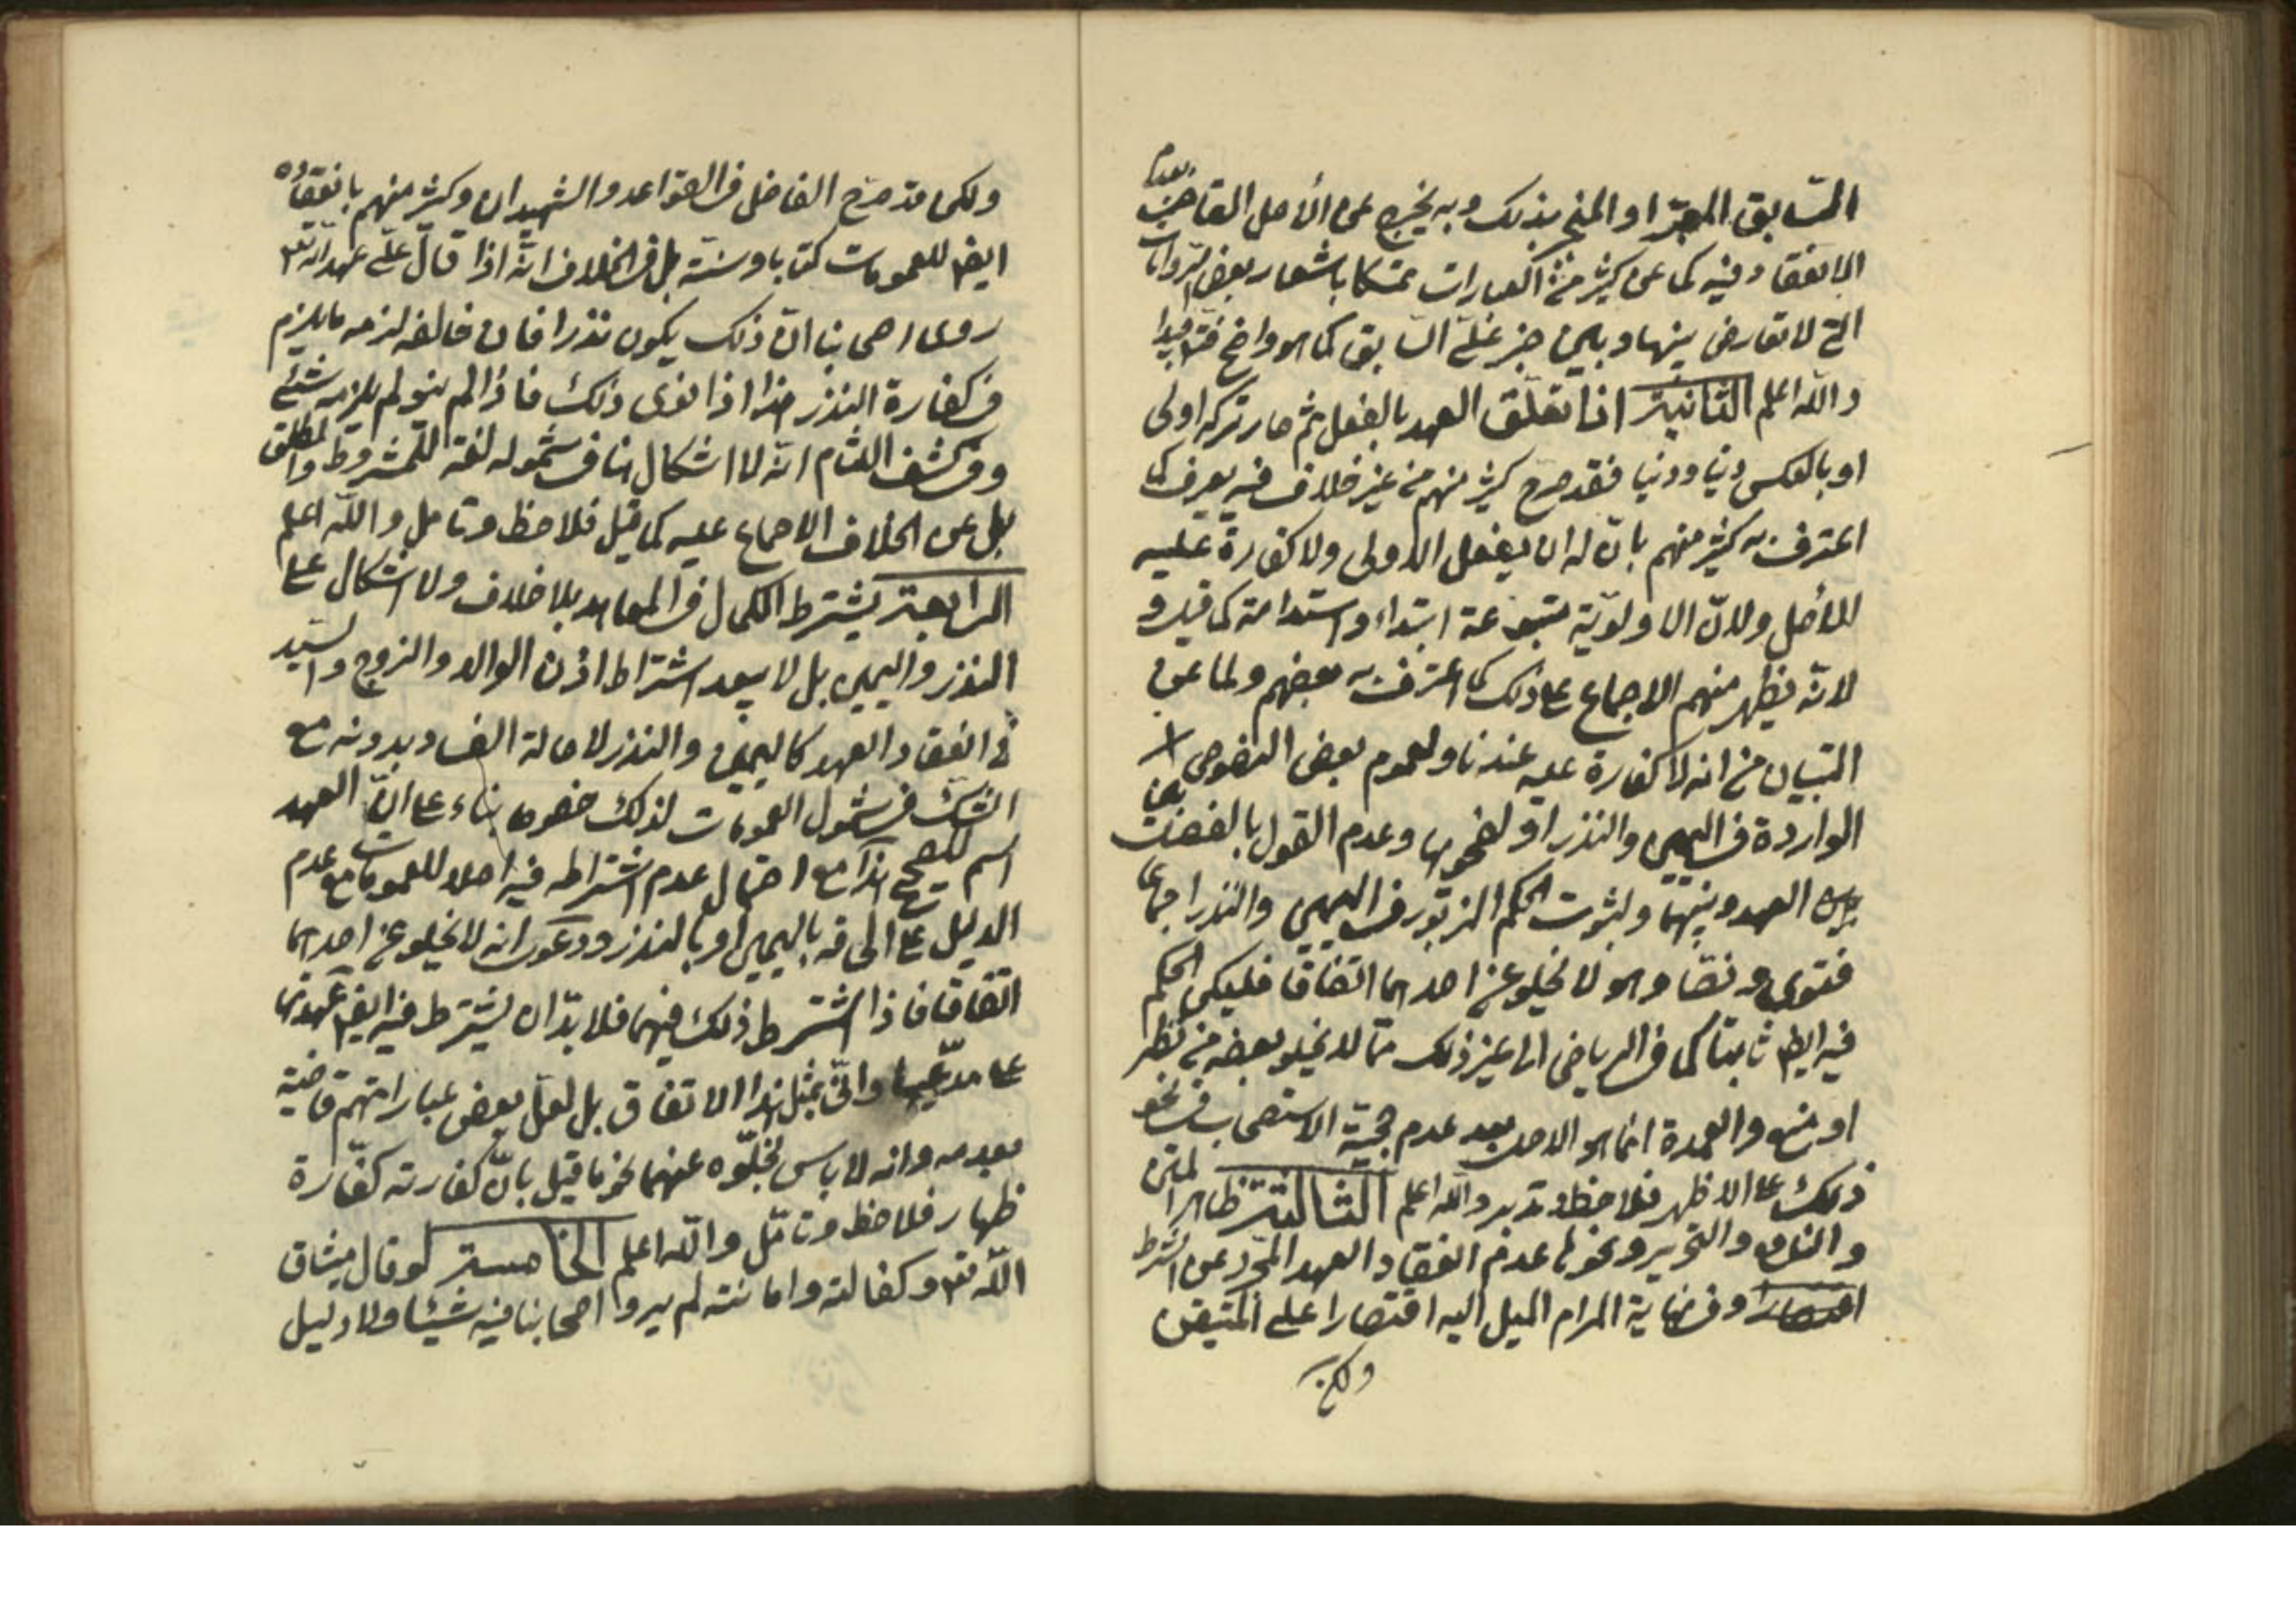 السابق المعبر او المنجبر بذلك وبه يخرج عن الأصل القاضي بعدم
الانعقاد فيه كما عن كثير من العبارات تمسكا باشعار بعض الروايات
التي لا تعارض بينها وبين خبر علي السابق كما هو واضح جدا
والله اعلم الثانية اذا تعلق العهد بالفعل ثم صار تركه اولى
او بالعكس دينا ودنيا فقد صرح كثير منهم من غير خلاف فيه يعرف كما
اعترف به كثير منهم بان له ان يفعل الاولى ولا كفارة عليه
للأصل ولان الاولوية متبوعة ابتداء واستدامة كما قيل و
لانه يظهر منهم الاجماع على ذلك كما اعترف به بعضهم ولما عن
التبيان من انه لا كفارة عليه عندنا ولعموم بعض النصوص
الواردة في اليمين والنذر او لفحويها وعدم القول بالفصل
بين العهد وبينهما ولثبوت الحكم المزبور في اليمين والنذر اجماعا
فتوى ونصا وهو لا يخلو عن احدهما اتفاقا فليكن الحكم
فيه ايضا ثابتا كما في الرياض الى غير ذلك مما لا يخلو بعضه من نظر
او منع والعمدة انما هو الاصل بعد عدم حجية الاستصحاب في نحو
ذلك على الاظهر فلاحظ وتدبر والله اعلم الثالثة ظاهر المتن
والنافع والتحرير ونحوها عدم انعقاد العهد المجرد عن الشرط
وفي نهاية المرام الميل اليه اقتصارا على المتيقن
ولكن
ولكن قد صرح الفاضل في القواعد والشهيدان وكثير منهم بانعقاده
ايضا للعمومات كتابا وسنة بل في الخلاف انه اذا قال علي عهد الله تعه
روى اصحابنا ان ذلك يكون نذرا فان خالفه لزمه ما يلزم
في كفارة النذر هذا اذا نوى ذلك فاذا لم ينو لم يلزمه شيئ
وفي كشف اللثام انه لا اشكال هنا في شموله لغة للمشروط والمطلق
بل عن الخلاف الاجماع عليه كما قيل فلاحظ وتامل والله اعلم
الرابعة يشترط الكمال في المعاهد بلا خلاف ولا اشكال على
النذر واليمين بل لا يبعد اشتراط اذن الوالد والزوج والسيد
في انعقاد العهد كاليمين والنذر لاصالة الفساد بدونه مع
الشك في شمول العمومات لذلك خصوصا بناء على ان العهد
اسم للصحيح هذا مع احتمال عدم اشتراطه فيه اصلا للعمومات مع عدم
الدليل على الحاقه باليمين او بالنذر ودعوى انه لا يخلو عن احدهما
اتفاقا فاذا اشترط ذلك فيهما فلا بد ان يشترط فيه ايضا عهدتها
على مدعيها وانى بمثل هذا الاتفاق بل لعل بعض عباراتهم قاضية
بعدمه وانه لا باس بخلوه عنهما نحو ما قيل بان كفارته كفارة
ظهار فلاحظ وتامل والله اعلم الخامسة لو قال ميثاق
الله تعه وكفالته وامانته لم يروا اصحابنا فيه شيئا ولا دليل